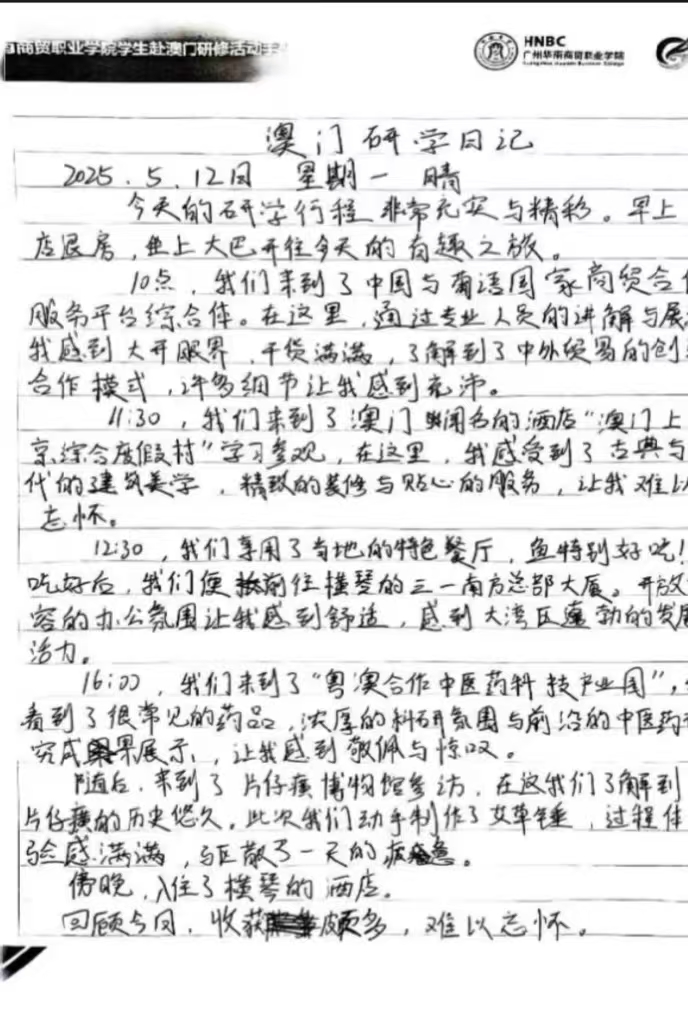 商贸职业学院学生赴澳门研修活动手
HNBC
广州华南商贸职业学院
澳门研学日记
2025.5.12日 星期一 晴
今天的研学行程非常充实与精彩。早上
店退房,坐上大巴开往今天的有趣之旅。
10点,我们来到了中国与葡语国家商贸合作
服务平台综合体。在这里,通过专业人员的讲解与展
我感到大开眼界,干货满满,了解到了中外贸易的创
合作模式,许多细节让我感到充沛。
11:30,我们来到了澳门闻名的酒店“澳门上
京综合度假村”学习参观,在这里,我感受到了古典与
代的建筑美学,精致的装修与贴心的服务,让我难以
忘怀。
12:30,我们享用了当地的特色餐厅,鱼特别好吃!
吃好后,我们便前往横琴的三一南方总部大厦。开放
容的办公氛围让我感到舒适,感到大湾区蓬勃的发展
活力。
16:00,我们来到了“粤澳合作中医药科技产业园”,
看到了很常见的药品,浓厚的科研氛围与前沿的中医药
究成果展示,让我感到敬佩与惊叹。
随后,来到了片仔癀博物馆参访,在这我们了解到
片仔癀的历史悠久。此次我们动手制作了艾草锤,过程体
验感满满,驱散了一天的疲惫。
傍晚,入住了横琴的酒店。
回顾今日,收获颇多,难以忘怀。